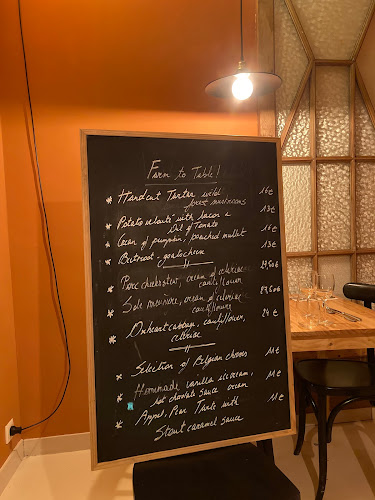 Farm to Table!
Handcut Tartar wild 16€
forest mushrooms
Potato velouté with bacon & 13€
Oil of Tomato
Cream of pumpkin, poached mullet 16€
Beetroot - goatscheese 13€
Porc cheeks stew, cream of celeriac
cauliflower
Sole meunière, cream of celeriac
cauliflower
cauliflower, 24€
celeriac
Selection of Belgian cheeses 11€
Homemade vanilla ice cream, 11€
hot chocolate sauce cream
Appel, Pear Tarte with 11€
Stout caramel sauce